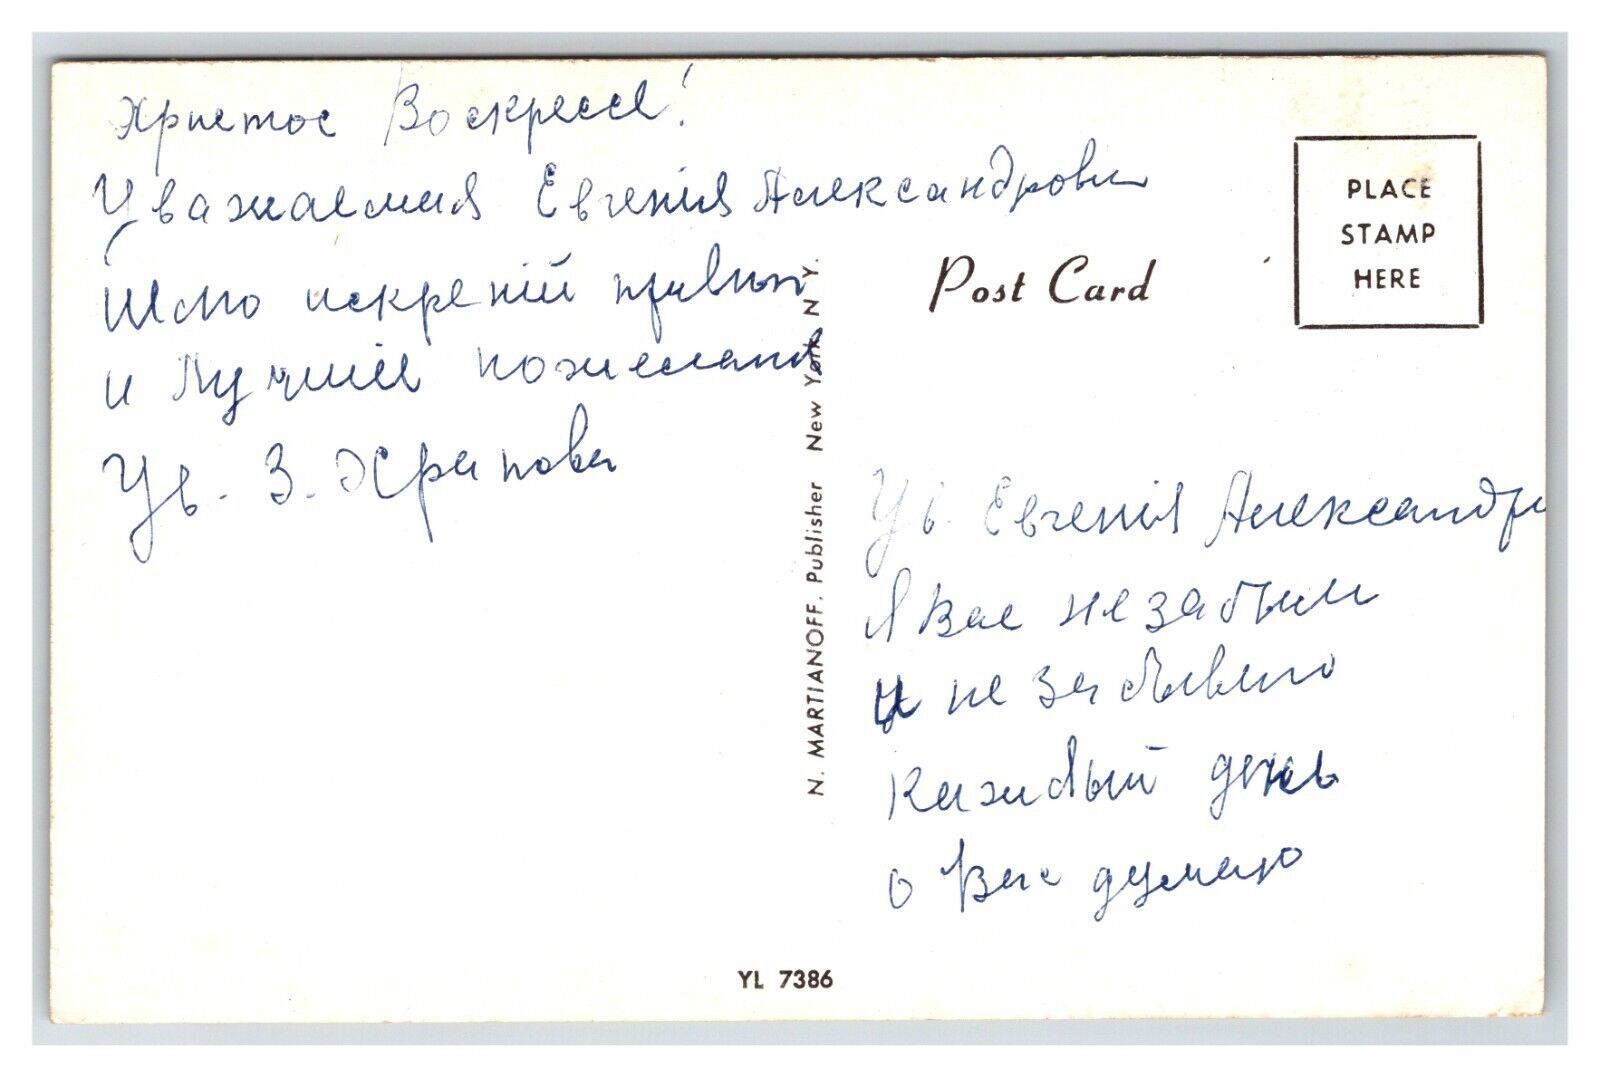 Христос Воскресе!
Уважаемая Евгенія Александровна
Шлю искреній привет
и Лучшіе пожелания
Ув. З. Храпова
PLACE
STAMP
HERE
Post Card
N. MARTIANOFF. Publisher New York N.Y.
Ув. Евгенія Александр
Я Вас не забыла
и не забываю
каждый день
о Вас думаю
YL 7386